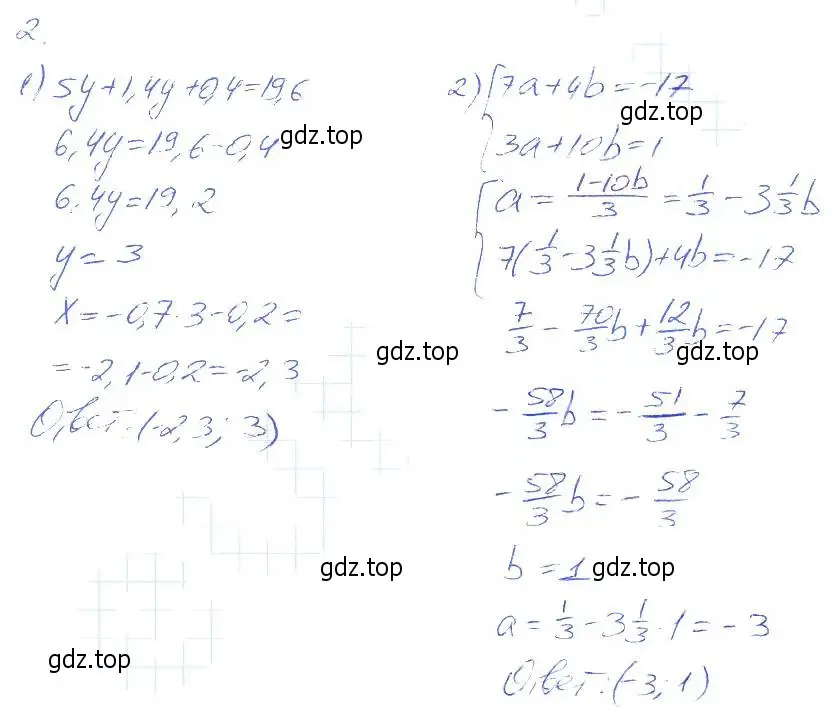 2.
1) 5y+1,4y+0,4=19,6
6,4y=19,6-0,4
6,4y=19,2
y=3
x=-0,7·3-0,2=
=-2,1-0,2=-2,3
Ответ: (-2,3; 3)
2) {7a+4b=-17
3a+10b=1
{a=\frac{1-10b}{3}=\frac{1}{3}-3\frac{1}{3}b
7(\frac{1}{3}-3\frac{1}{3}b)+4b=-17
\frac{7}{3}-\frac{70}{3}b+\frac{12}{3}b=-17
-\frac{58}{3}b=-\frac{51}{3}-\frac{7}{3}
-\frac{58}{3}b=-\frac{58}{3}
b=1
a=\frac{1}{3}-3\frac{1}{3}·1=-3
Ответ: (-3; 1)
gdz.top
gdz.top
gdz.top
gdz.top
gdz.top
gdz.top
gdz.top
gdz.top